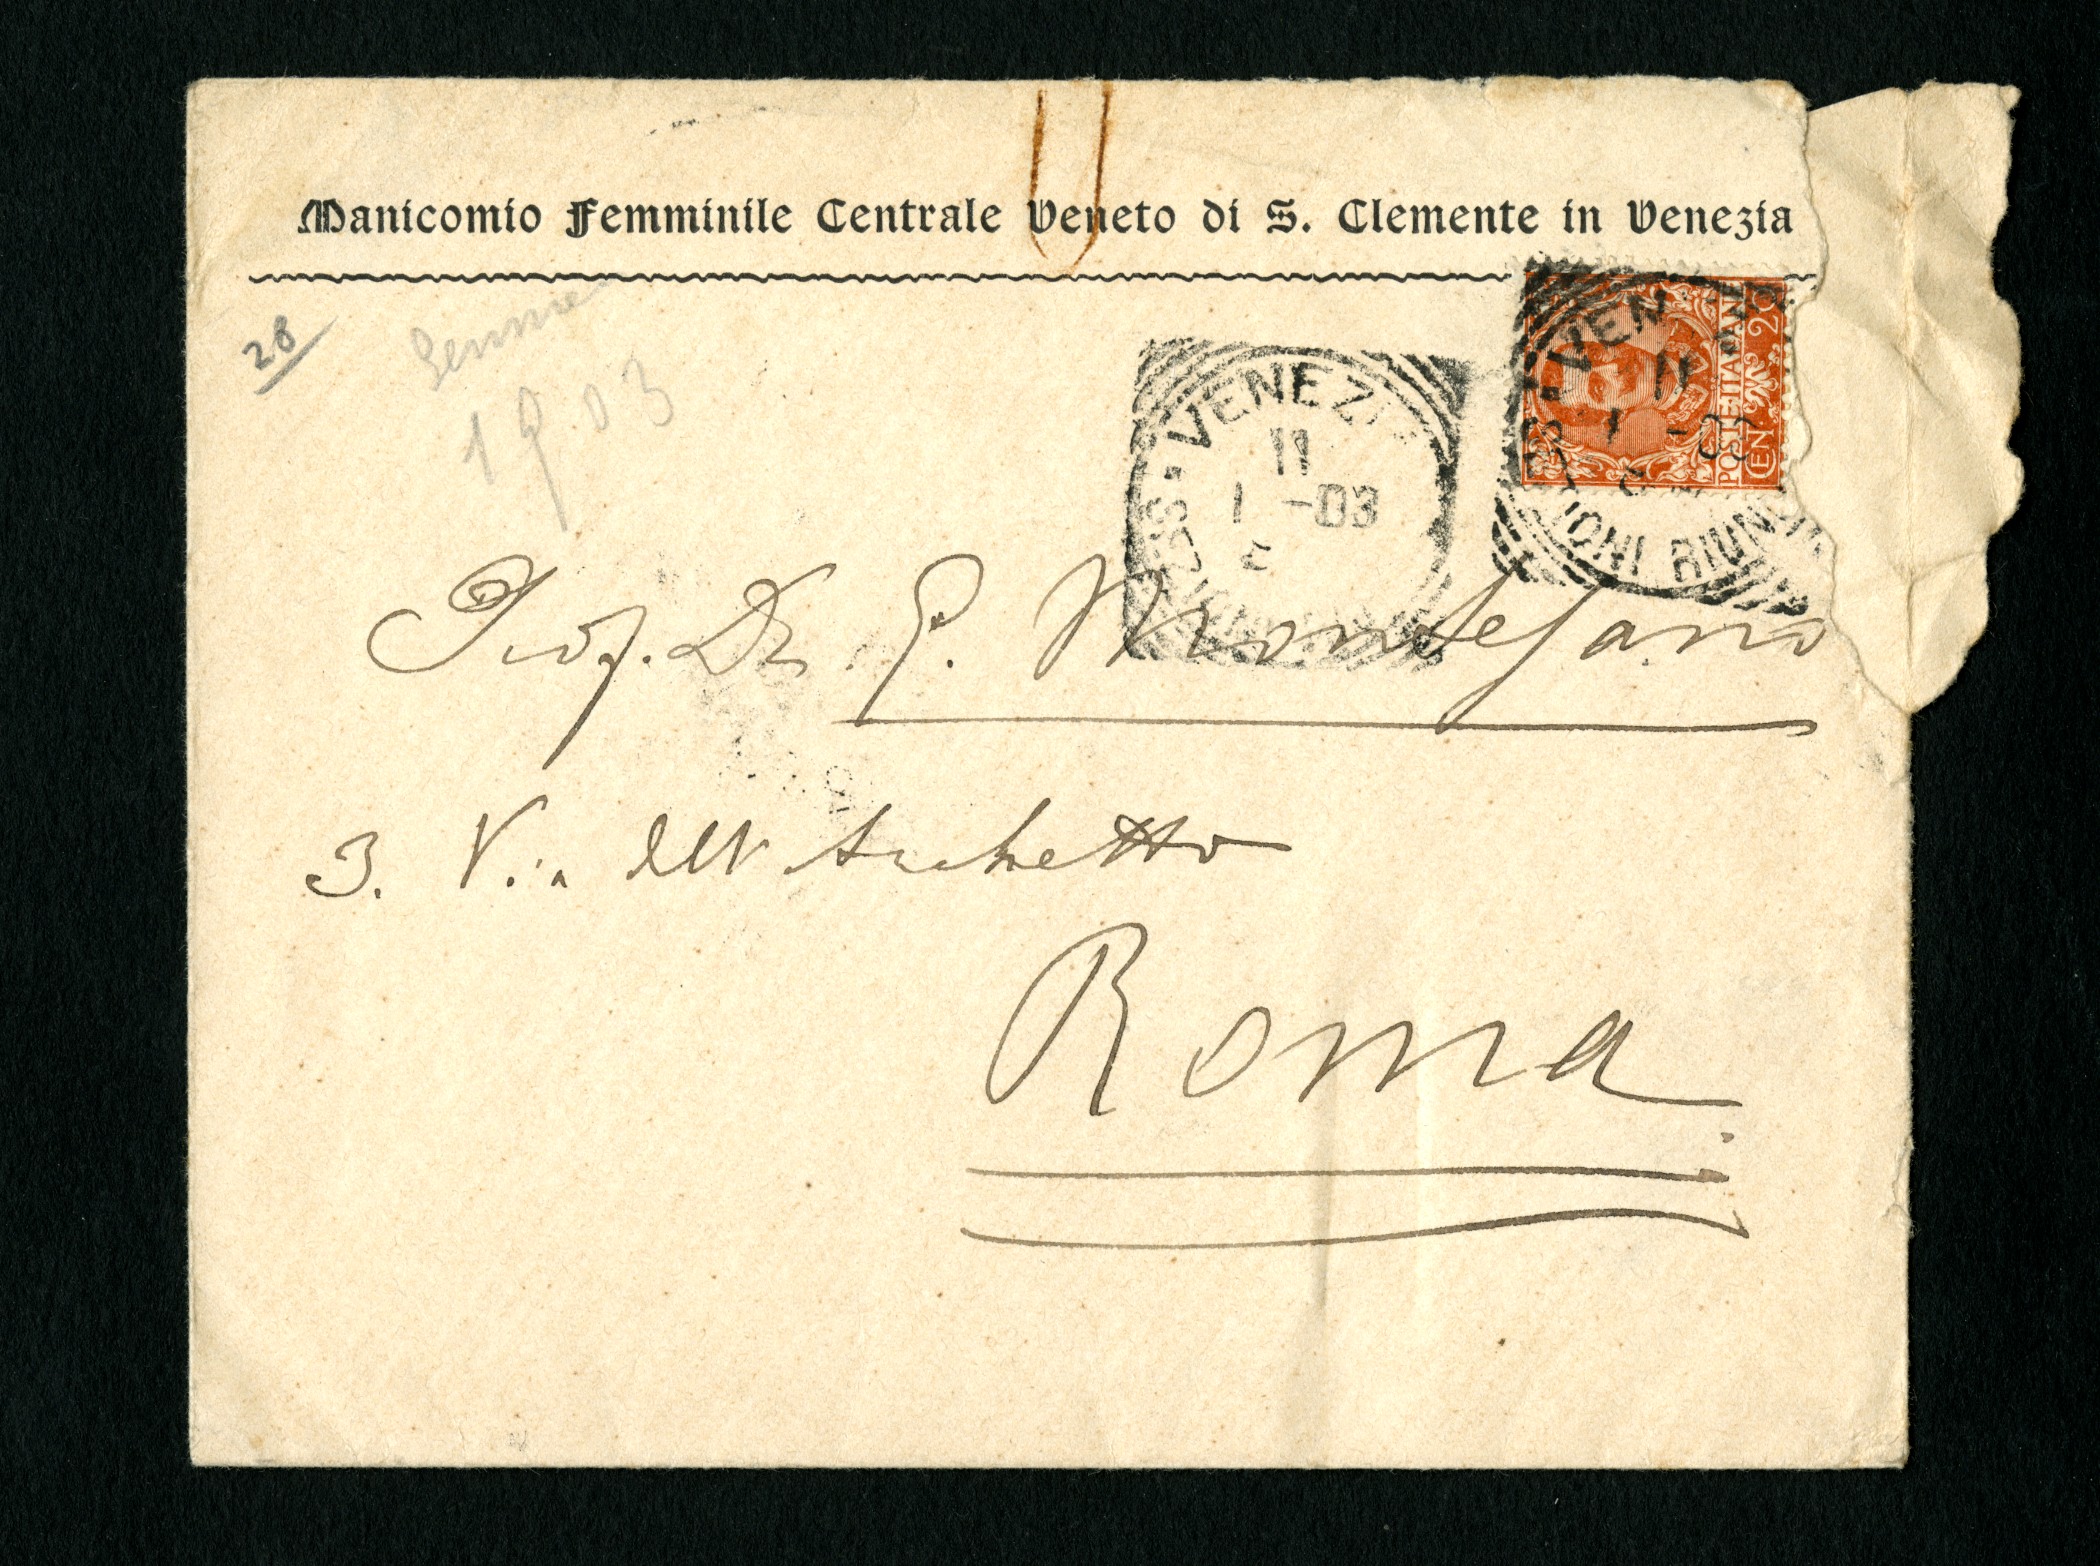 Manicomio Femminile Centrale Veneto di S. Clemente in Venezia
28
Gennaio
1903
VENEZI
11
1 -03
VEN
11
1 -03
IONI RIUNI
POSTE ITALIANE
CEN 20
Prof. Dr. G. Montesano
3. Via dell' Archetto
Roma